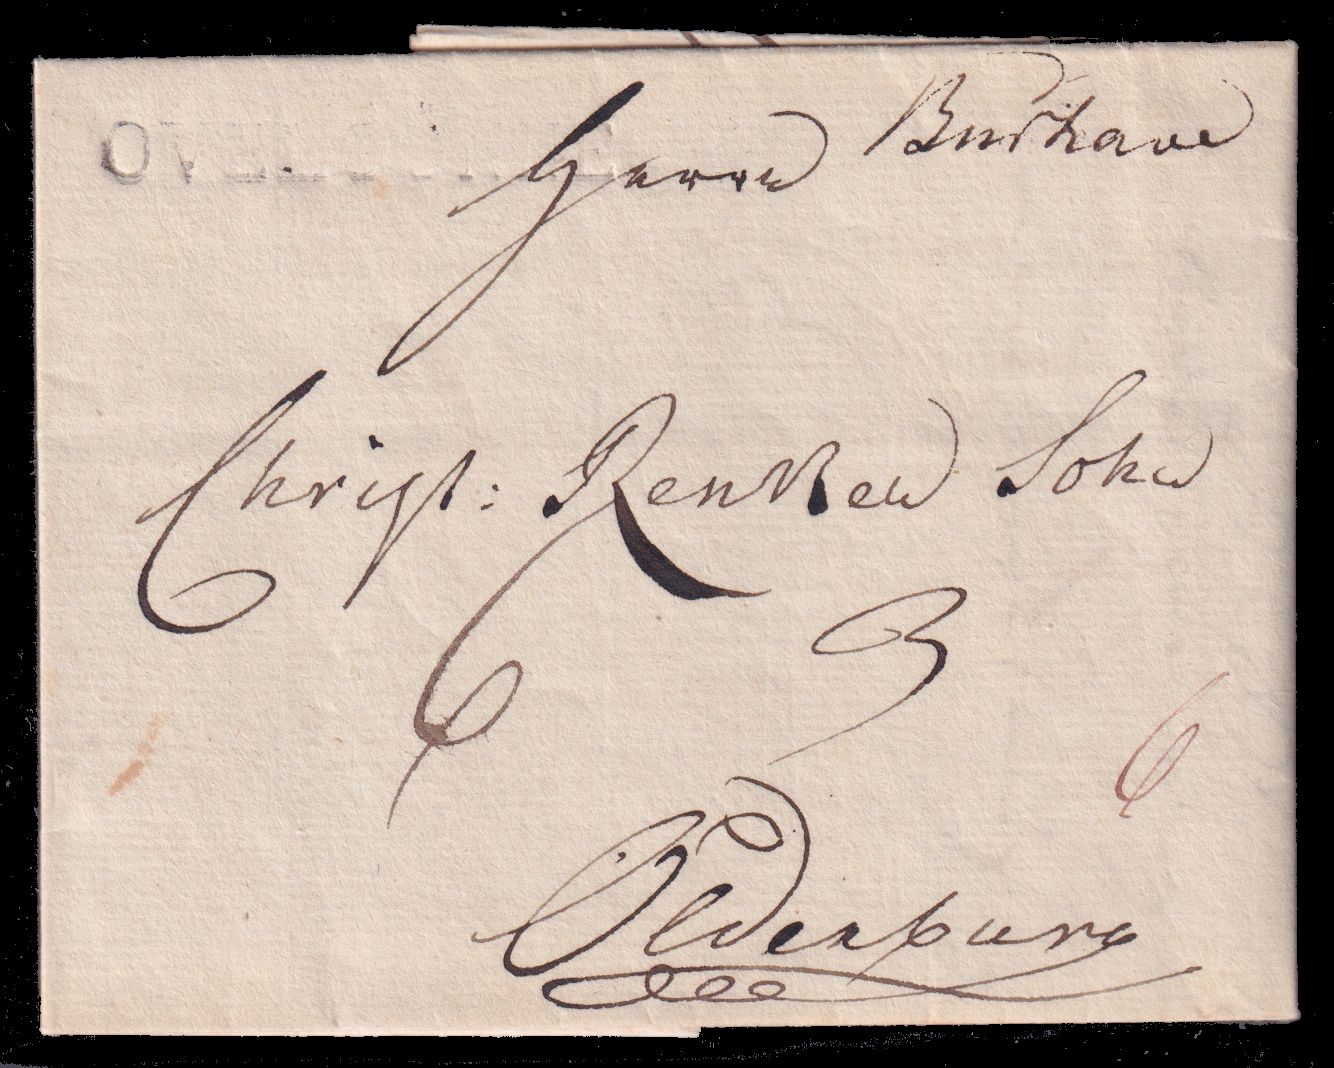 Burhave
Herrn
Christ: Renken Sohn
6 3
6
Oldenburg